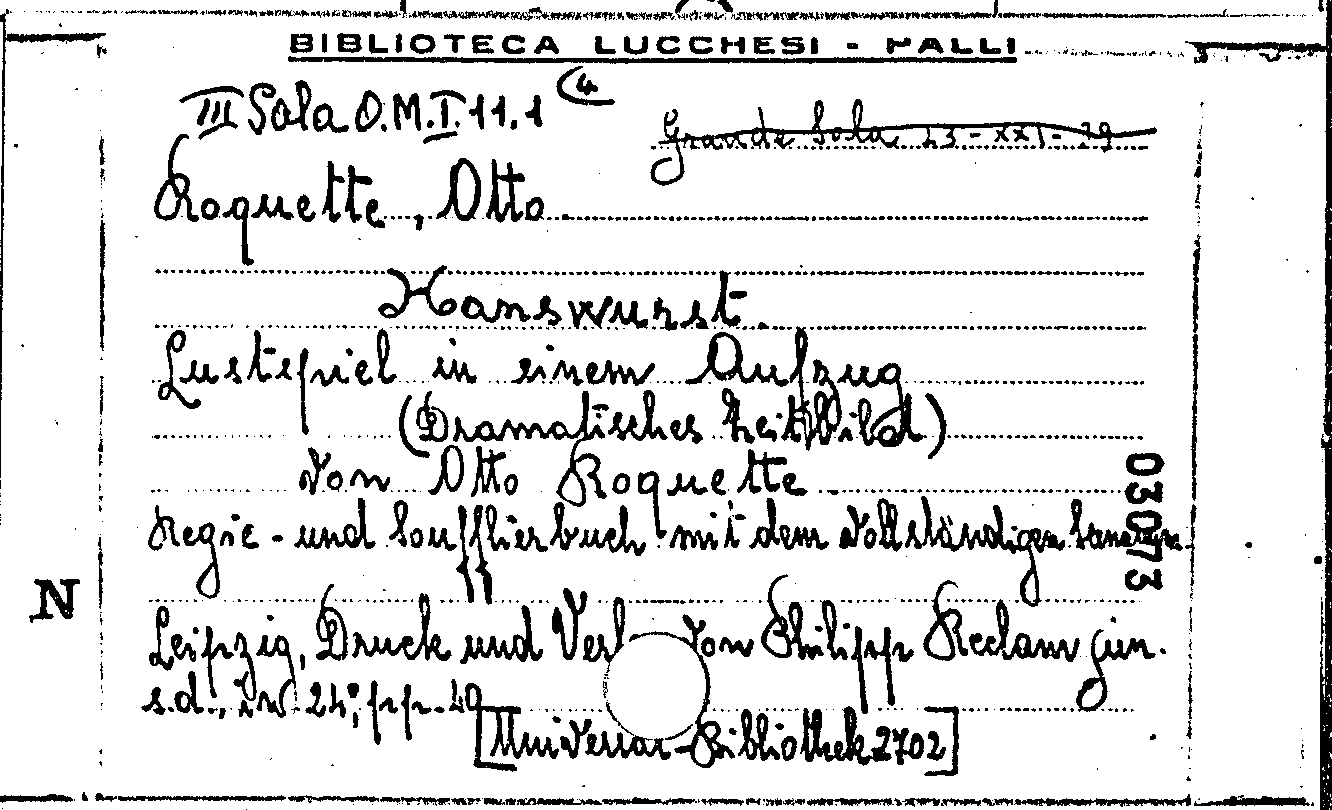 BIBLIOTECA LUCCHESI - PALLI
III Sala O.M.I.11.1 (4
Grande Sala 23-XXI-29
Roquette, Otto.
Hanswurst.
Lustspiel in einem Aufzug
(Dramatisches Zeitbild)
von Otto Roquette
Regie- und Soufflierbuch mit dem vollständigen
030073
N
Leipzig, Druck und Verl von Philipp Reclam jun.
s.d., in 24°, pp. 40
[Universal-Bibliothek 2702]